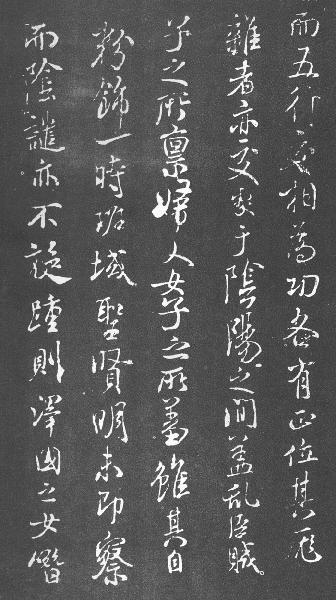 而五行更相為功各有正位其尨
雜者亦交契于陰陽之間蓋亂臣賊
子之所禀婦人女子之所羞雖其自
粉飾一時班域聖賢明未即察
而陰譴亦不旋踵則澤國之女僭